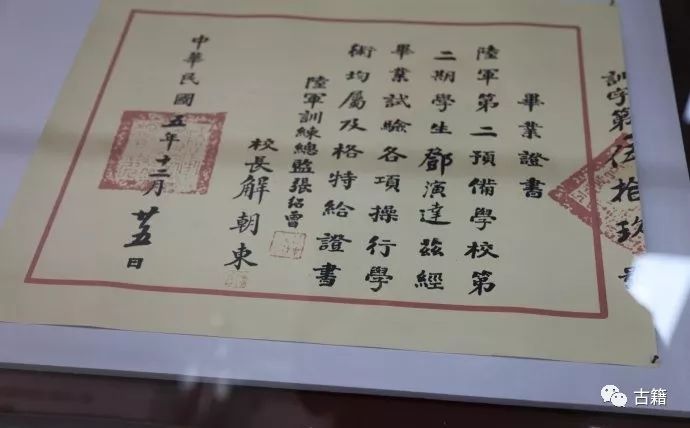 訓字第伍拾玖號
畢業證書
陸軍第二預備學校第
二期學生鄧演達茲經
畢業試驗各項操行學
術均屬及格特給證書
陸軍訓練總監張紹曾
校長解朝東
中華民國五年十二月廿五日
古籍